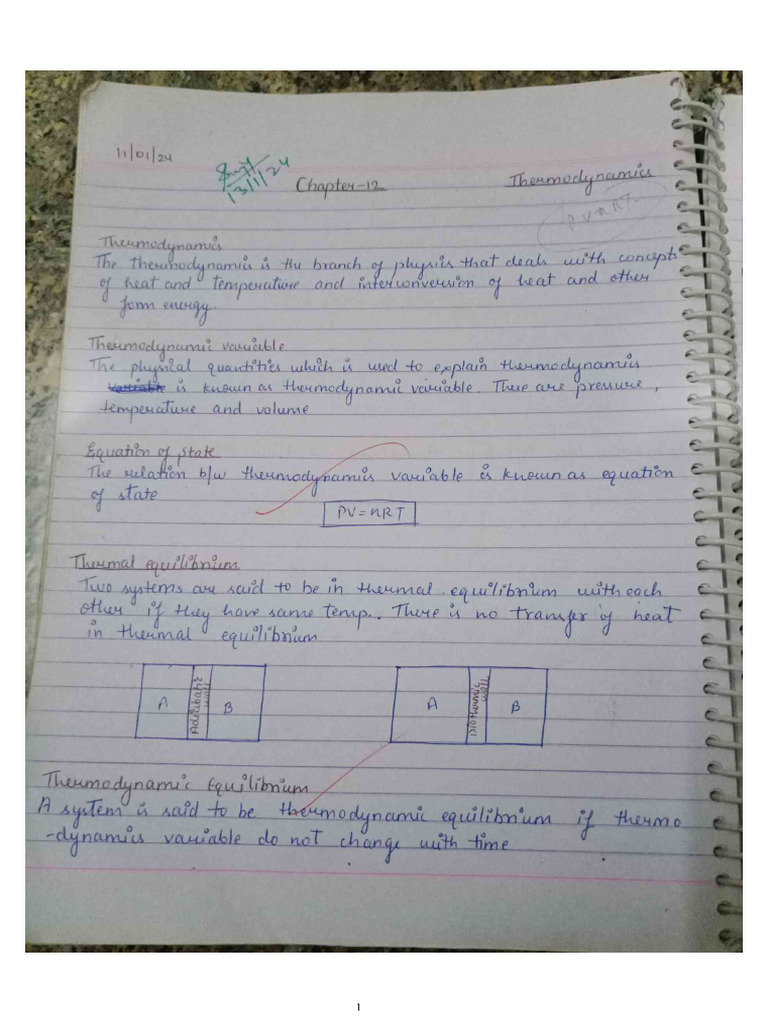 11/01/24
13/1/24
Chapter-12
Thermodynamics
PV=nRT
Thermodynamics
The thermodynamics is the branch of physics that deals with concept
of heat and temperature and interconversion of heat and other
form energy.
Thermodynamic variable
The physical quantities which is used to explain thermodynamics
variable is known as thermodynamic variable. These are pressure,
temperature and volume
Equation of state
The relation b/w thermodynamics variable is known as equation
of state
PV=nRT
Thermal equilibrium
Two systems are said to be in thermal equilibrium with each
other if they have same temp.. There is no transfer of heat
in thermal equilibrium
A Adiabatic wall B
A Diathermic wall B
Thermodynamic Equilibrium
A system is said to be thermodynamic equilibrium if thermo
-dynamics variable do not change with time
1